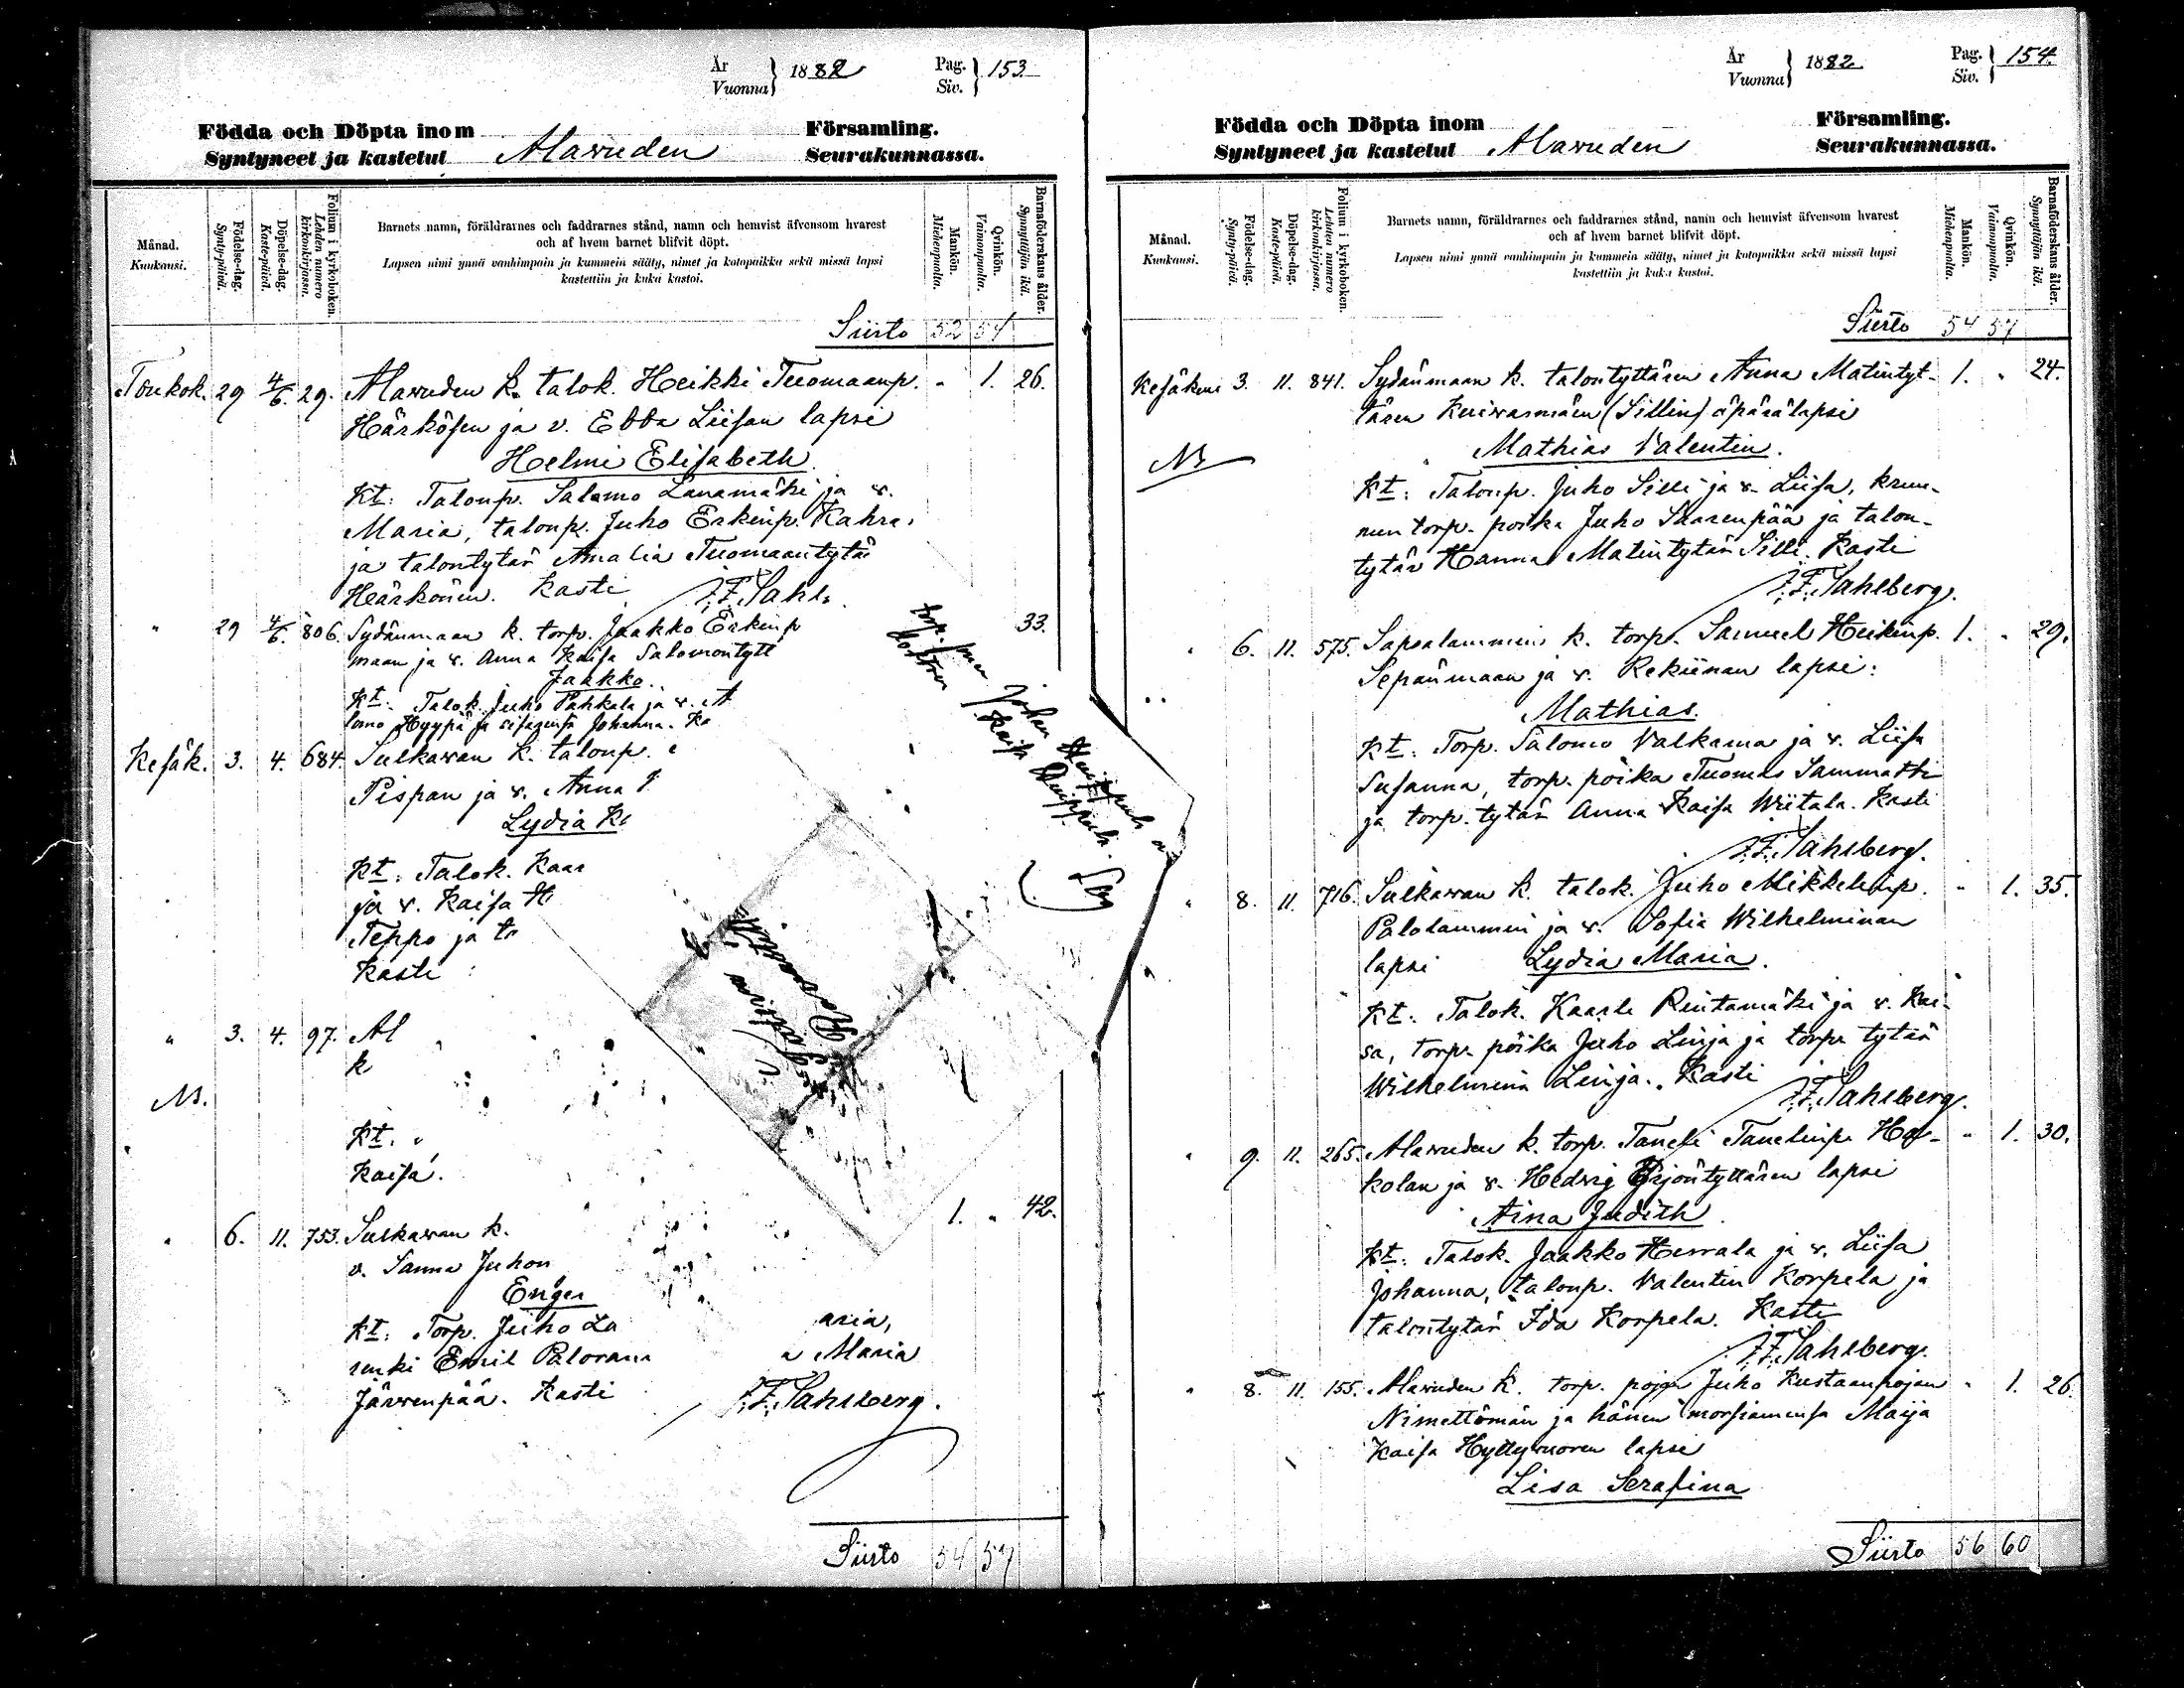 År
Vuonna
1882
Pag.
Siv.
153.
Födda och Döpta inom
Syntyneet ja kastetut
Alavuden
Församling.
Seurakunnassa.
Månad.
Kuukausi.
Födelse-dag.
Synty-päivä.
Döpelse-dag.
Kaste-päivä.
Folium i kyrkoboken.
Lehden numero kirkonkirjassa.
Barnets namn, föräldrarnes och faddrarnes stånd, namn och hemvist äfvensom hvarest
och af hvem barnet blifvit döpt.
Lapsen nimi ynnä vanhimpain ja kummein sääty, nimet ja kotopaikka sekä missä lapsi
kastettiin ja kuka kastoi.
Mankön.
Miehenpuolta.
Qvinkön.
Vaimonpuolta.
Barnaföderskans ålder.
Synnyttäjän ikä.
Siirto 52 54
Toukok. 29 4/6. 29. Alavuden k. talok. Heikki Tuomaanp. " 1. 26.
Härkösen ja v. Ebba Liisan lapsi
Helmi Elisabeth.
Kt: Talonp. Salomo Lanamäki ja v.
Maria, talonp. Juho Erkinp. Kahra,
ja talontytär Amalia Tuomaantytär
Härkönen. Kasti F.F. Sahl
" 29 4/6. 806. Sydänmaan k. torp. Jaakko Erkinp 33.
maan ja v. Anna Kaisa Salomontytt
Jaakko.
Kt: Talok. Juho Pahkala ja v. A
lomo Hyypä ja Johanna. Ka
Kesäk. 3. 4. 684. Sulkavan k. talonp.
Pispan ja v. Anna
Lydia K
Kt: Talok. Kaar
ja v. Kaisa H
Teppo ja t
Kasti
" 3. 4. 97. Al
k
N.
Kt.
Kaisa.
" 6. 11. 753. Sulkavan k. 1. " 42.
v. Sanna Juhon
Kt: Torp. Juho La aria,
renki Emil Palovana a Maria
Järvenpää. Kasti F.F. Sahlberg.
Siirto 54 57
År
Vuonna
1882
Pag.
Siv.
154.
Födda och Döpta inom
Syntyneet ja kastetut
Alavuden
Församling.
Seurakunnassa.
Månad.
Kuukausi.
Födelse-dag.
Synty-päivä.
Döpelse-dag.
Kaste-päivä.
Folium i kyrkoboken.
Lehden numero kirkonkirjassa.
Barnets namn, föräldrarnes och faddrarnes stånd, namn och hemvist äfvensom hvarest
och af hvem barnet blifvit döpt.
Lapsen nimi ynnä vanhimpain ja kummein sääty, nimet ja kotopaikka sekä missä lapsi
kastettiin ja kuka kastoi.
Mankön.
Miehenpuolta.
Qvinkön.
Vaimonpuolta.
Barnaföderskans ålder.
Synnyttäjän ikä.
Siirto 54 57
Kesäkuu 3. 11. 841. Sydänmaan k. talontyttären Anna Matintyt- 1. " 24.
tären Kuivasmäen (Sillin) äpärälapsi
Mathias Valentin.
Kt: Talonp. Juho Silli ja v. Liisa, kruu-
nun torp. poika Juho Saarenpää ja talon-
tytär Hanna Matintytär Silli. Kasti
F.F. Sahlberg.
" 6. 11. 575. Sapsalammin k. torp. Samuel Heikinp. 1. " 29.
Sepänmaan ja v. Rekiinan lapsi:
Mathias.
Kt: Torp. Salomo Valkama ja v. Liisa
Susanna, torp. poika Tuomas Sammatti
ja torp. tytär Anna Kaisa Wiitala. Kasti
F.F. Sahlberg.
" 8. 11. 716. Sulkavan k. talok. Juho Mikkelinp. " 1. 35.
Palolammin ja v. Sofia Wilhelminan
lapsi Lydia Maria.
Kt: Talok. Kaarle Rintamäki ja v. Kai-
sa, torp. poika Juho Linja ja torp. tytär
Wilhelmina Linja. Kasti
F.F. Sahlberg.
" 9. 11. 265. Alavuden k. torp. Taneli Tanelinp. Ha- " 1. 30.
kolan ja v. Hedvig Yrjöntyttären lapsi
Aina Judith.
Kt: Talok. Jaakko Herrala ja v. Liisa
Johanna, talonp. Valentin Korpela ja
talontytär Ida Korpela. Kasti
F.F. Sahlberg.
" 8. 11. 155. Alavuden k. torp. pojan Juho Kustaanpojan " 1. 26.
Nimettömän ja hänen morsiamensa Maija
Kaisa Hyttyvuoren lapsi
Lisa Serafina
Siirto 56 60